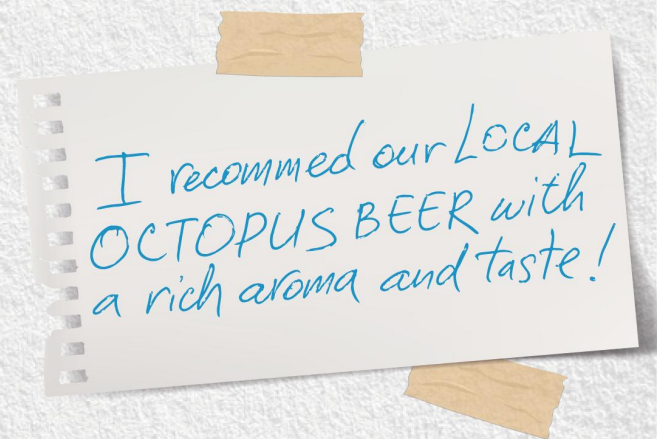 I recommed our LOCAL
OCTOPUS BEER with
a rich aroma and taste!